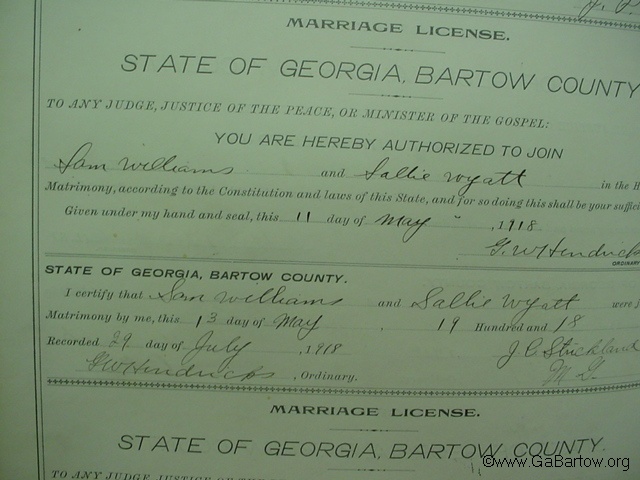 MARRIAGE LICENSE.
STATE OF GEORGIA, BARTOW COUNTY
TO ANY JUDGE, JUSTICE OF THE PEACE, OR MINISTER OF THE GOSPEL:
YOU ARE HEREBY AUTHORIZED TO JOIN
Sam Williams and Sallie Wyatt in the H
Matrimony, according to the Constitution and laws of this State, and for so doing this shall be your suffici
Given under my hand and seal, this 11 day of May , 1918
G.W Hendricks
ORDINARY
STATE OF GEORGIA, BARTOW COUNTY.
I certify that Sam Williams and Sallie Wyatt were j
Matrimony by me, this 13 day of May , 19 Hundred and 18
Recorded 29 day of July , 1918 J C Strickland
GW Hendricks , Ordinary. M G
MARRIAGE LICENSE.
STATE OF GEORGIA, BARTOW COUNTY.
TO ANY JUDGE, JUSTICE OF THE PEACE, OR MINISTER OF THE GOSPEL:
©www.GaBartow.org